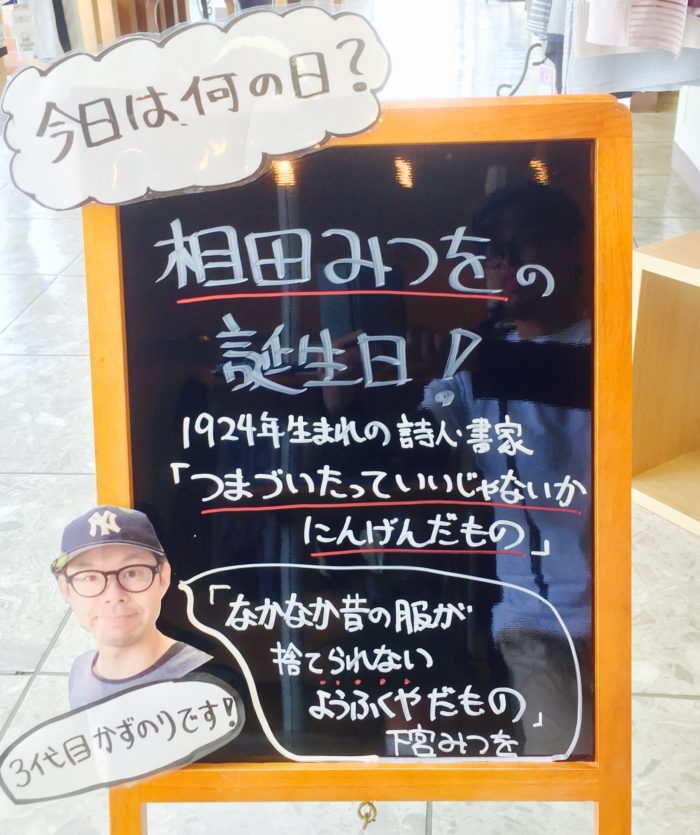 今日は、何の日?
相田みつをの
誕生日!
1924年生まれの詩人・書家
「つまづいたっていいじゃないか
にんげんだもの」
「なかなか昔の服が
捨てられない
ようふくやだもの」
下宮みつを
NY
3代目かずのりです!